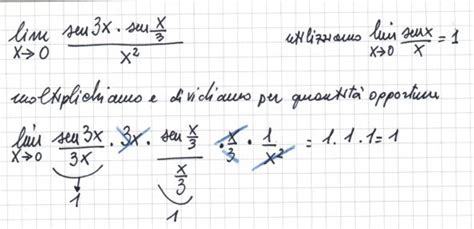 lim x→0 (sen 3x · sen x/3) / x² utilizziamo lim x→0 sen x / x = 1
moltiplichiamo e dividiamo per quantità opportune
lim x→0 sen 3x / 3x · 3x · (sen x/3) / (x/3) · x/3 · 1/x² = 1 . 1 . 1 = 1
1
1